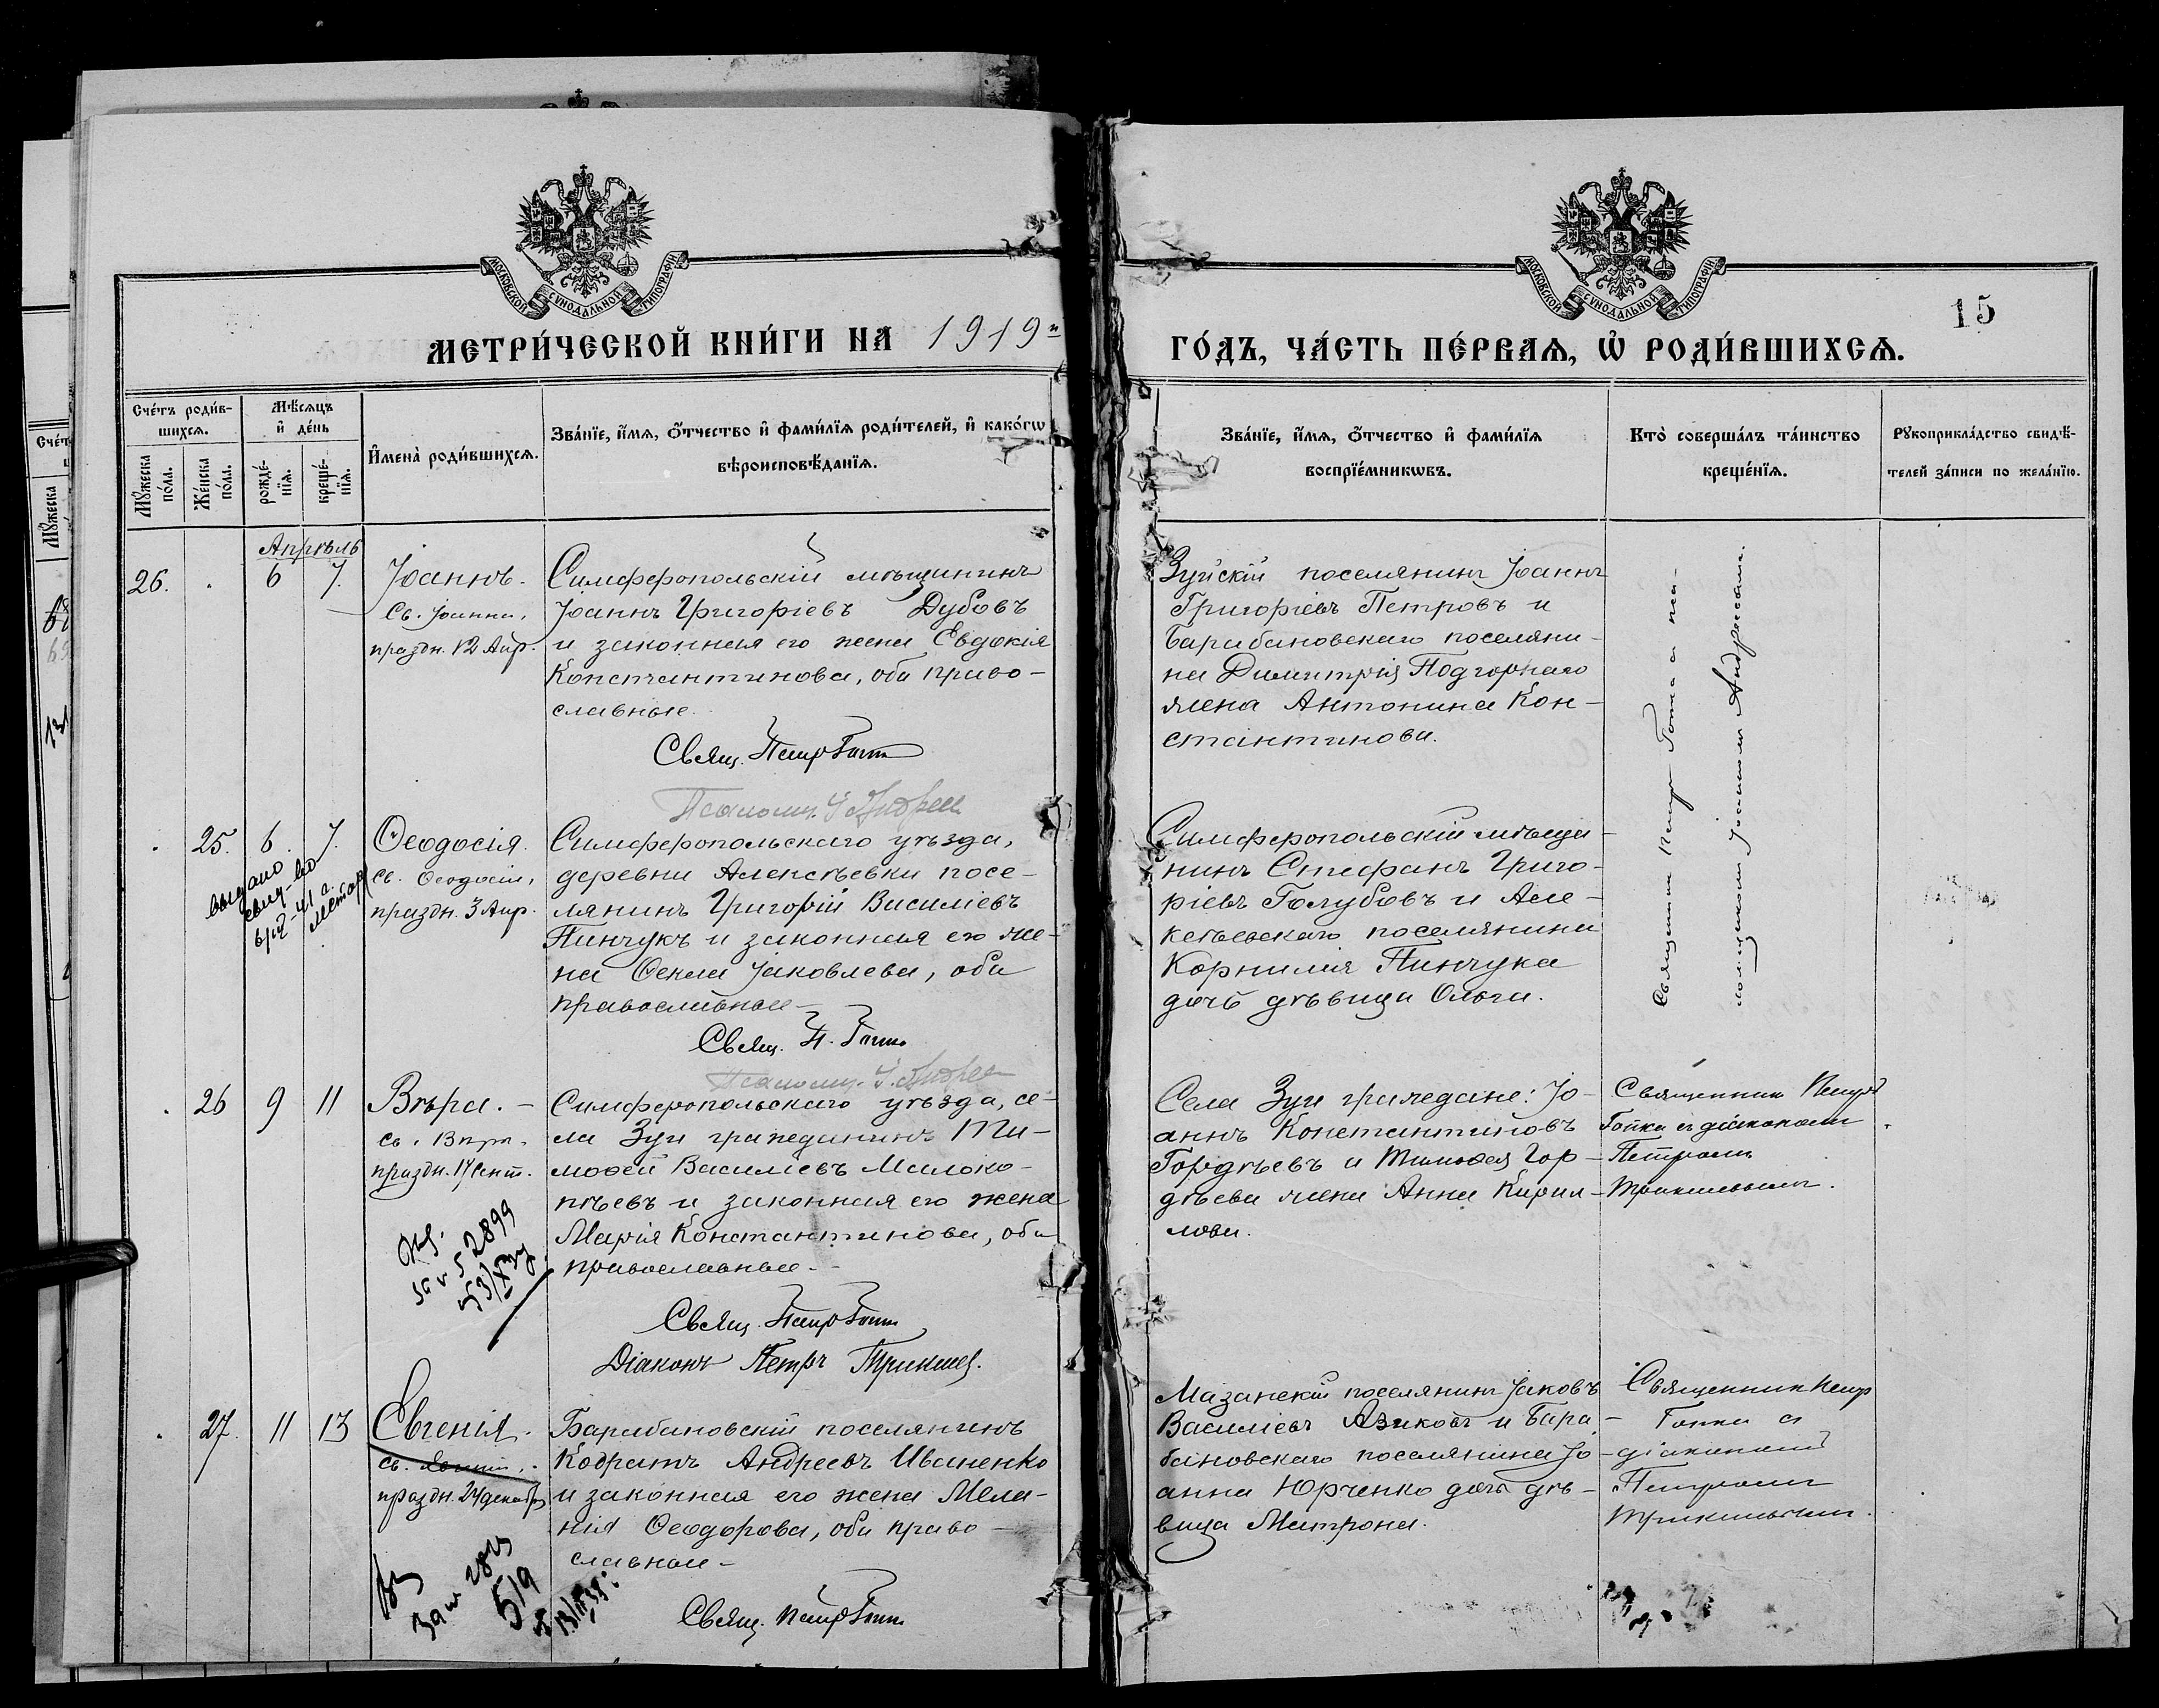 МОСКОВСКОЙ СѴНОДАЛЬНОЙ ТИПОГРАФІИ
МОСКОВСКОЙ СѴНОДАЛЬНОЙ ТИПОГРАФІИ
15
МЕТРИ́ЧЕСКОЙ КНИ́ГИ НА 1919й
ГО́ДЪ, ЧА́СТЬ ПЕ́РВАѦ, Ѡ҆ РОДИ́ВШИХСѦ.
Сче́тъ роди́в-
шихсѧ.
Мꙋ́жеска по́ла.
Же́нска по́ла.
Мѣ́сѧцъ
и҆ де́нь
рожде́-
нїѧ.
креще́-
нїѧ.
И҆мена̀ роди́вшихсѧ.
Зва́нїе, и҆́мѧ, ѻ҆́тчество и҆ фами́лїѧ роди́телей, и҆ како́гѡ
вѣроисповѣ́данїѧ.
Зва́нїе, и҆́мѧ, ѻ҆́тчество и҆ фами́лїѧ
воспрїе́мникѡвъ.
Кто̀ соверша́лъ та́инство
креще́нїѧ.
Рꙋкоприкла́дство свидѣ́-
телей за́писи по жела́нїю.
Апрѣль
26. 6 7.
Іоаннъ.
Св. Іоанна,
праздн. 12 Апр.
Симферопольскій мѣщанинъ
Іоаннъ Григоріевъ Дубовъ
и законная его жена Евдокія
Константинова, оба право-
славные.
Свящ. Петр Гопк
Псаломщ. І Андрее
Зуйскій поселянинъ Іоаннъ
Григоріевъ Петровъ и
Барабановскаго поселяни-
на Димитрія Подгорнаго
жена Антонина Кон-
стантинова.
Священник Петр Гопка с пса-
ломщиком Іоанном Андреевым.
25. 6. 7.
Ѳеодосія.
Св. Ѳеодосіи,
праздн. 3 Апр.
выдано
Симферопольскаго уѣзда,
деревни Алексѣевки посе-
лянинъ Григорій Василіевъ
Пинчукъ и законная его же-
на Ѳекла Іаковлева, оба
православные
Свящ. П. Гопк
Псаломщ. І. Андрее
Симферопольскій мѣща-
нинъ Стефанъ Григо-
ріевъ Голубовъ и Але-
ксѣевскаго поселянина
Корнилія Пинчука
дочь дѣвица Ольга.
26 9 11
Вѣра.
Св. Вѣры,
праздн. 17 Сент.
52899
Симферопольскаго уѣзда, се-
ла Зуи гражданинъ Ти-
моѳей Василіевъ Малоко-
пѣевъ и законная его жена
Марія Константинова, оба
православные.
Свящ. Петр Гопк
Діаконъ Петръ Трикашев.
Села Зуи граждане: Іо-
аннъ Константиновъ
Гордѣевъ и Тимоѳея Гор-
дѣева жена Анна Кирил-
лова.
Священник Петръ
Гопка съ діакономъ
Петромъ
27. 11 13
Евгенія.
праздн. 24 декабр
Барабановскій поселянинъ
Кодратъ Андреевъ Иваненко
и законная его жена Мела-
нія Ѳеодорова, оба право-
славные
Свящ. Петр Гопк
Мазанскій поселянинъ Іаковъ
Василіевъ Язиковъ и Бара-
бановскаго поселянина Іо-
анна Юрченко дочь дѣ-
вица Матрона.
Священник Петр
Гопка съ
діакономъ
Петромъ